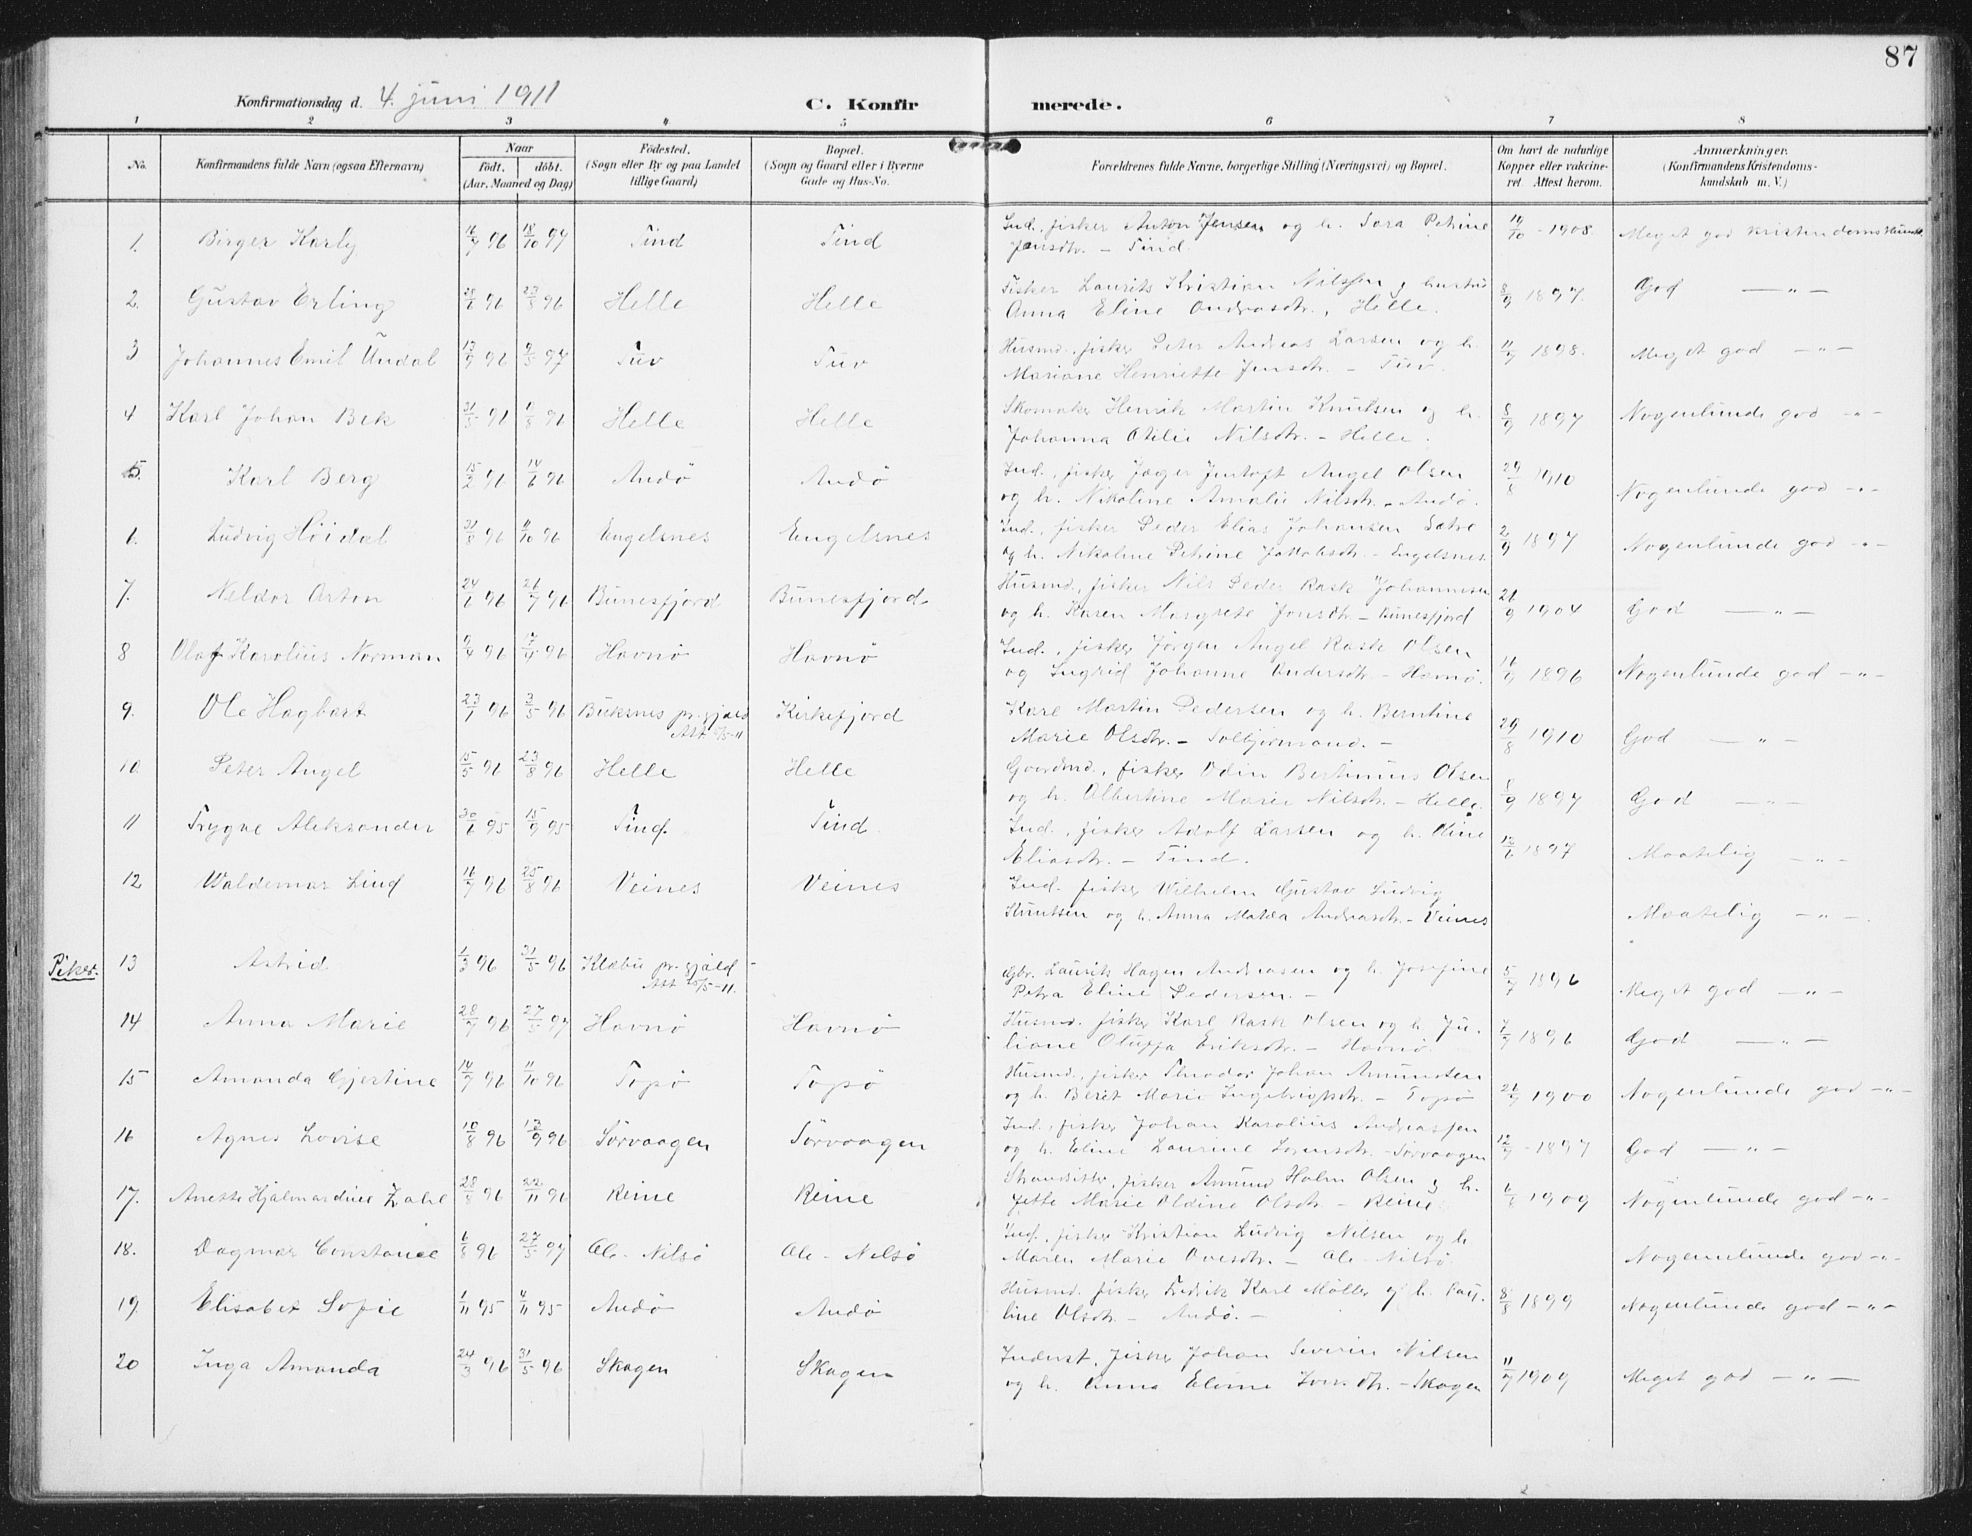 87
Konfirmationsdag d. 4. juni 1911 C. Konfirmerede.
1 2 3 4 5 6 7 8
No. Konfirmandens fulde Navn (ogsaa Efternavn) Naar Födt. döbt. (Aar, Maaned og Dag) Födested. (Sogn eller By og paa Landet tillige Gaard) Bopæl. (Sogn og Gaard eller i Byerne Gade og Hus-No. Forældrenes fulde Navne, borgerlige Stilling (Næringsvei) og Bopæl. Om havt de naturlige Kopper eller vakcineret. Attest herom. Anmærkninger. (Konfirmandens Kristendomskundskab m. V.)
1. Birger Karly 16/7 96 18/10 97 Tind Tind Ind. fisker Anton Jensen og h. Sara Petrine 14/10 - 1908. Meget god Kristendomskunds.
Jensdtr. - Tind.
2. Gustav Erling 28/6 96 23/8 96 Helle Helle Fisker Laurits Kristian Nilssen og hustru 8/9 1897. God — „ —
Anna Eline Andreasdtr., Helle.
3 Johannes Emil Undal 13/9 96 9/5 97 Tuv Tuv Husmd., fisker Peter Andreas Larsen og h. 11/9 1898. Meget god — „ —
Mariane Henriette Jensdtr. - Tuv.
4 Karl Johan Bek 31/5 96 9/8 96 Helle Helle Skomaker Henrik Martin Knutsen og h. 8/9 1897 Nogenlunde god - „ -
Johanna Otilie Nilsdtr. - Helle.
5. Karl Berg 15/2 96 14/6 96 Andö Andö Ind., fisker Jæger Jentoft Angel Olsen 29/8 1910 Nogenlunde god - „ -
og h. Nikoline Amalie Nilsdtr. - Andö.
6. Ludvig Höidal 31/8 96 11/10 96 Engelsnes Engelsnes Ind., fisker Peder Elias Johansen Sætre 2/9 1897 Nogenlunde god - „ -
og h. Nikoline Petrine Jakobsdtr. - Engelsnes.
7. Neldor Arton 24/6 96 26/7 96 Bunesfjord Bunesfjord Husmd., fisker Nils Peder Rask Johannesen 21/9 1904 God — „ —
og h. Karen Margrete Jonsdtr. - Bunesfjord
8 Olaf Karolius Norman Havnö Havnö Ind., fisker Jörgen Angel Rask Olsen 16/9 1896 Nogenlunde god - „ -
og Ingrid Johanne Andersdtr. - Havnö.
9. Ole Hagbart 23/1 96 3/5 96 Buksnes pr.gjæld Kirkefjord Karl Martin Pedersen og h. Berntine 29/8 1910 God — „ —
Att. Marie Olsdtr. - -
10. Peter Angel 15/5 96 23/8 96 Helle Helle Gaardmd., fisker Odin Bertinius Olsen 8/9 1897 God — „ —
og h. Albertine Marie Nilsdtr. - Helle.
11 Trygve Aleksander 30/6 95 15/9 95 Tind Tind Ind., fisker Adolf Larsen og h. Oline 1897 Maatelig — „ —
Eliasdtr. - Tind.
12 Waldemar Lind 16/7 96 25/8 96 Veines Veines Ind. fisker Wilhelm Gustav Ludvig
Knutsen og h. Anna Matea Andreasdtr. - Veines Maatelig — „ —
Piker. 13 Astrid 1/3 96 31/5 96 Klæbu pr.gjæld - Gbr. Laurits Hagen Andreasen og h. Josefine 5/7 1896 Meget god — „ —
Att. 20/5-11. Petra Eline Pedersen. -
14 Anna Marie 28/7 96 27/5 97 Havnö Havnö Husmd. fisker Karl Rask Olsen og h. Ju- 7/9 1896 God — „ —
liane Oluffa Eriksdtr. - Havnö.
15 Amanda Gjertine 14/7 96 11/10 96 Topö Topö Husmd., fisker Theodor Johan Amundsen 26/9 1900 Nogenlunde god - „ -
og h. Beret Marie Ingebrigtsdtr. - Topö
16 Agnes Lovise 10/8 96 13/9 96 Sörvaagen Sörvaagen Ind., fisker Johan Karolius Andreassen 12/9 - 1897 God — „ —
og h. Eline Laurine Sörensdtr. - Sörvaagen
17. Anette Hjalmardine Zahl 28/8 96 22/11 96 Reine Reine Strandsitter, fisker Amund Holm Olsen og h. 6/8 1909 Nogenlunde god - „ -
Jette Marie Oldine Olsdtr. - Reine.
18. Dagmar Constance 6/8 96 27/5 97 Ole-Nilsö Ole-Nilsö Ind., fisker Kristian Ludvig Nilsen og h.
Maren Marie Ovesdtr. - Ole-Nilsö Nogenlunde god - „ -
19. Elisabet Sofie 1/11 95 Andö Andö Husmd. fisker Fredrik Karl Möller og h. Pau- 8/8 1899 Nogenlunde god - „ -
line Olsdtr. - Andö. -
20 Inga Amanda 24/3 96 31/5 96 Skagen Skagen Inderst, fisker Johan Severin Nilsen 11/9 1909 Meget god — „ —
og h. Anna Elvine Iversdtr. - Skagen